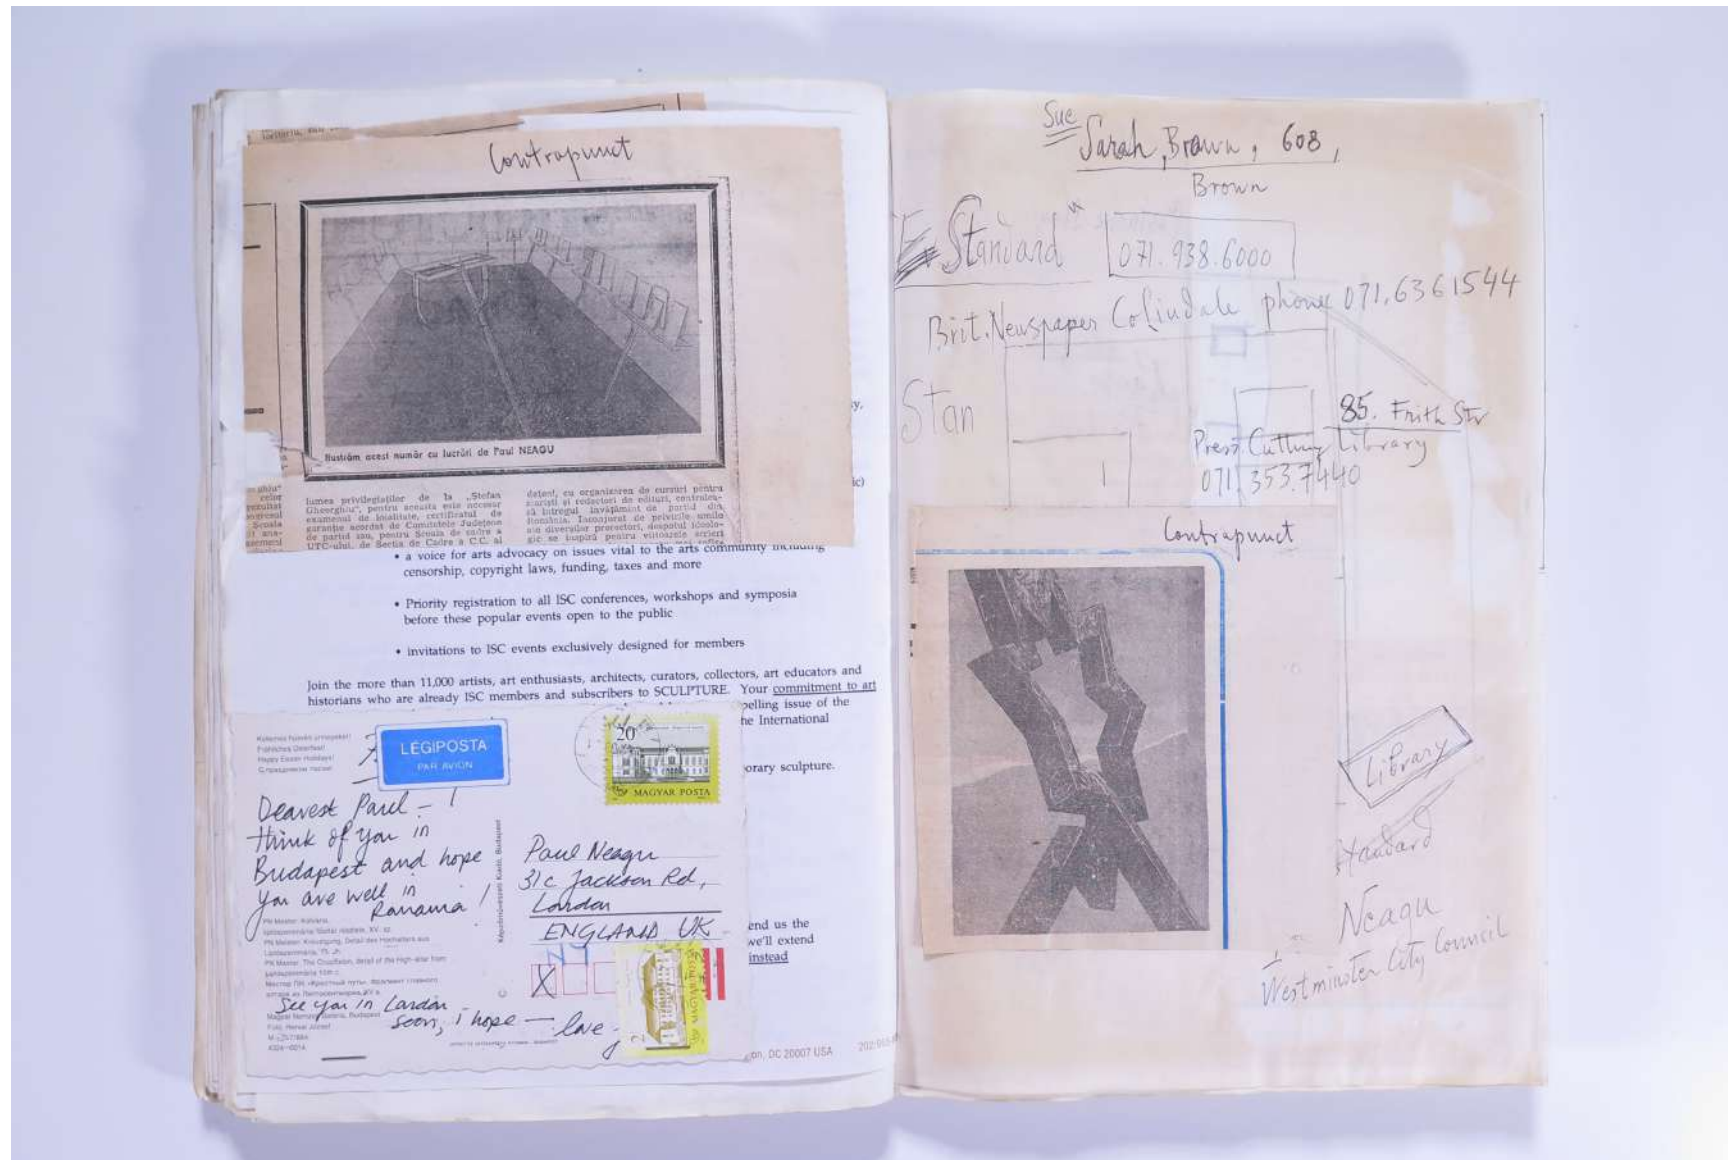 Contrapunct
Ilustrăm acest număr cu lucrări de Paul NEAGU
lumea privilegiaților de la „Ștefan
Gheorghiu", pentru aceasta este necesar
examenul de loialitate, certificatul de
garanție acordat de Comitetele Județene
de partid sau, pentru Școala de cadre a
UTC-ului, de Secția de Cadre a C.C. al
dețeni, cu organizarea de cursuri pentru
ziariști și redactori de edituri,
să întregul învățămînt de partid din
România. Înconjurat de privirile
ale diverșilor procurori, despotul
gic se inspiră pentru viitoarele scrieri
• a voice for arts advocacy on issues vital to the arts community including
censorship, copyright laws, funding, taxes and more
• Priority registration to all ISC conferences, workshops and symposia
before these popular events open to the public
• invitations to ISC events exclusively designed for members
Join the more than 11,000 artists, art enthusiasts, architects, curators, collectors, art educators and
historians who are already ISC members and subscribers to SCULPTURE. Your commitment to art
pelling issue of the
he International
orary sculpture.
end us the
we'll extend
instead
on, DC 20007 USA
Kellemes húsvéti ünnepeket!
Fröhliches Osterfest!
Happy Easter Holidays!
LÉGIPOSTA
PAR AVION
20
MAGYAR POSTA
Dearest Paul – !
think of you in
Budapest and hope
you are well in
Romania !
PN Master, The Crucifixion, detail of the High-altar from
See you in London
soon, I hope — love
Képzőművészeti Kiadó, Budapest
Paul Neagu
31c Jackson Rd,
London
ENGLAND UK
X
MAGYAR POSTA
Sue
Sarah, Brown, 608,
Brown
E. Standard"
071.938.6000
Brit. Newspaper Colindale phone 071.6361544
Stan
85. Frith Str
Press Cutting Library
071 353.7440
Contrapunct
Library
Standard
Neagu
Westminster City Council